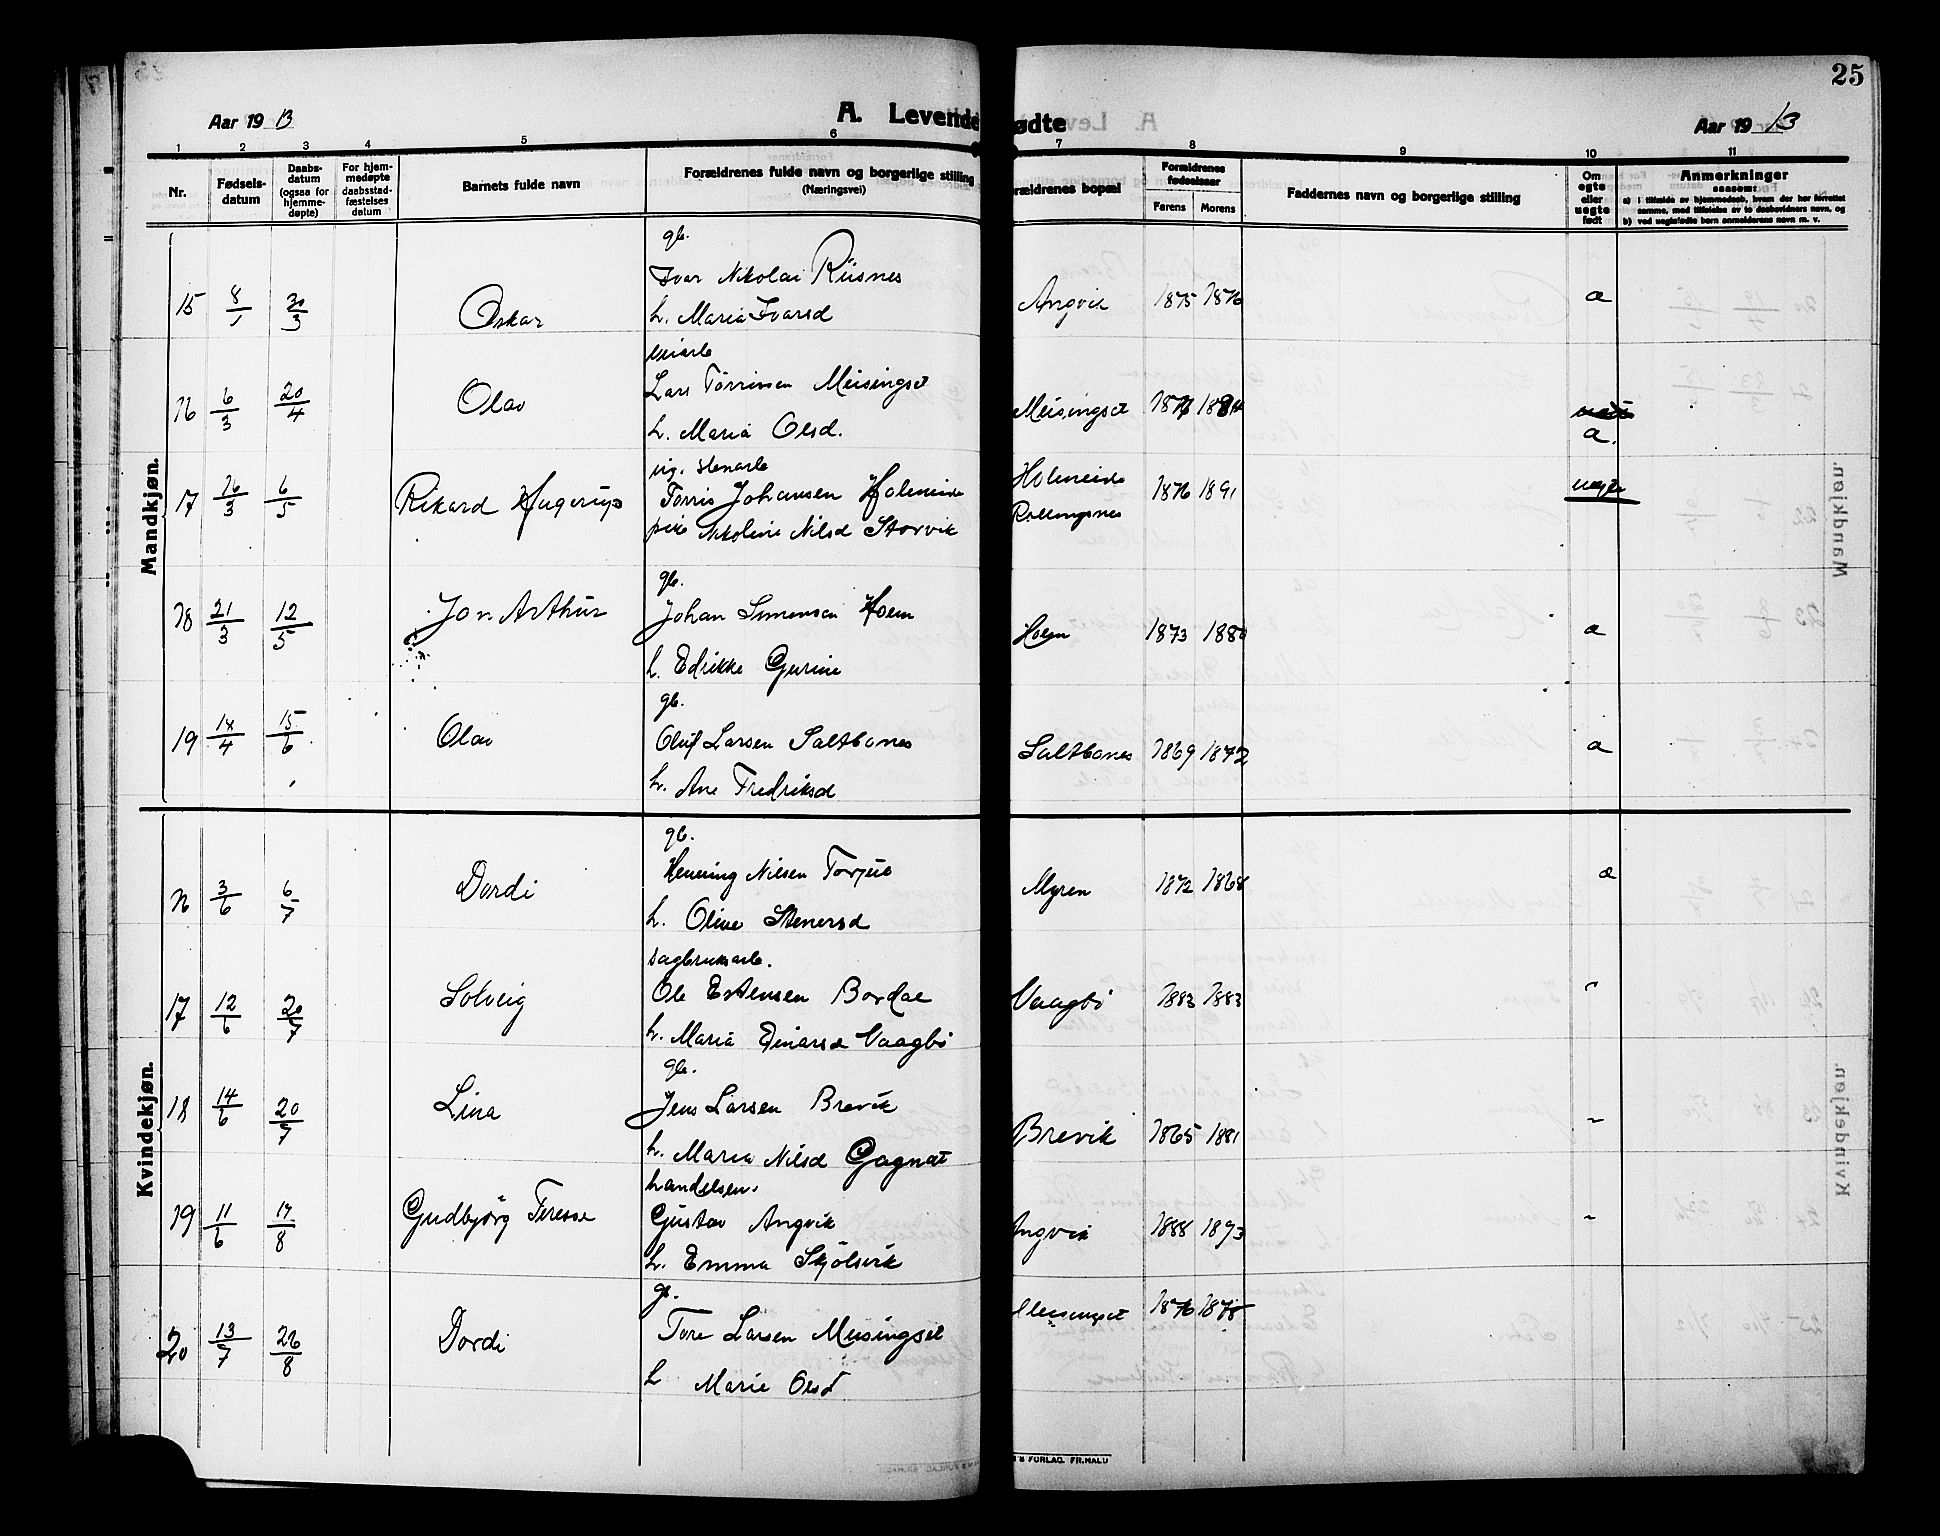 25
Aar 1913
A. Levende
ødte
Aar 1913
1 2 3 4 5 6 7 8 9 10 11
Nr.
Fødsels-
datum
Daabs-
datum
(ogsaa for
hjemme-
døpte)
For hjem-
medøpte
daabsstad-
fæstelses
datum
Barnets fulde navn
Forældrenes fulde navn og borgerlige stilling
(Næringsvei)
rældrenes bopæl
Forældrenes
fødselsaar
Farens Morens
Faddernes navn og borgerlige stilling
Om
egte
eller
uegte
født
Anmerkninger
saasom:
a) i tilfælde av hjemmedaab, hvem der har forrettet
samme, med tilføielse av to daabsvidners navn, og
b) ved uegtefødte barn anmelderens navn m. v.
Mandkjøn.
gb.
15 8/1 30/3 Oskar Ivar Nikolai Riisnes Angvik 1875 1876 æ
h. Maria Ivarsd
16 6/3 20/4 Olav Lars Tørrisen Meisingset Meisingset
h. Maria Olsd. æ.
17 26/3 6/5 Rikard Hagerup Tørris Johansen Holeneide Holeneide 1876 1891 uegte
pike Nikoline Nilsd Storvik
gb.
18 21/3 12/5 Jon Arthur Johan Simensen Hoem Hoem 1873 æ
h. Edrikke Gurine
gb.
19 14/4 15/6 Olav Oluf Larsen Saltbones Saltbones 1869 1872 æ
h. Ane Fredriksd
Kvindekjøn.
gb.
16 3/6 6/7 Dordi Henning Nilsen Torjul Myren 1872 1868 æ
h. Oline Stenersd
sagbruksarb.
17 12/6 20/7 Solveig Ole Estensen Bordal Vaagbö 1883 1883 "
h. Maria Einarsd Vaagbö
gb.
18 14/6 20/7 Lina Jens Larsen Brevik Brevik 1865 1881 "
h. Maria Nilsd Gagnat
handelsm.
19 11/6 17/8 Gudbjörg Terese Gustav Angvik Angvik 1888 1893 "
h. Emma Skjölsvik
gb.
20 13/7 26/8 Dordi Tore Larsen Meisingset Meisingset 1876 1878
h Marie Olsd
'S FORLAG. FR.HALD